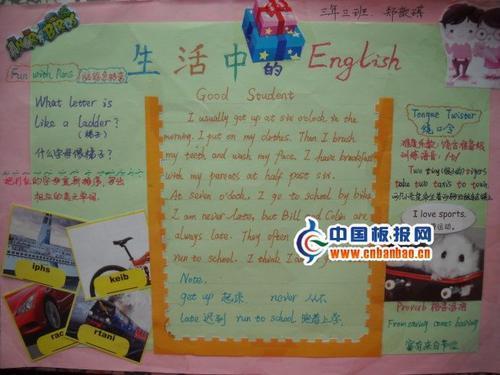 三年三班 郑歆琪
生活中的 English
Fun with Puns
What letter is
like a ladder?
(梯子)
什么字母像梯子?
把打乱的字母重新排序，写出
相应的英文单词
iphs
keib
rac
rtani
Good Student
I usually get up at six o'clock in the
morning. I put on my clothes. Then I brush
my teeth and wash my face. I have breakfast
with my parents at half past six.
At seven o'clock, I go to school by bike.
I am never late, but Bill and Colin are
always late. They often
run to school. I think I am
Note:
get up 起床 never 从不
late 迟到 run to school 跑着上学
Tongue Twister
绕口令
Two tiny(很小的)tigers
take two taxis to town
I love sports.
运动。
Proverb 格言谚语
From saving comes having
富有来自节俭
中国板报网
www.cnbanbao.cn